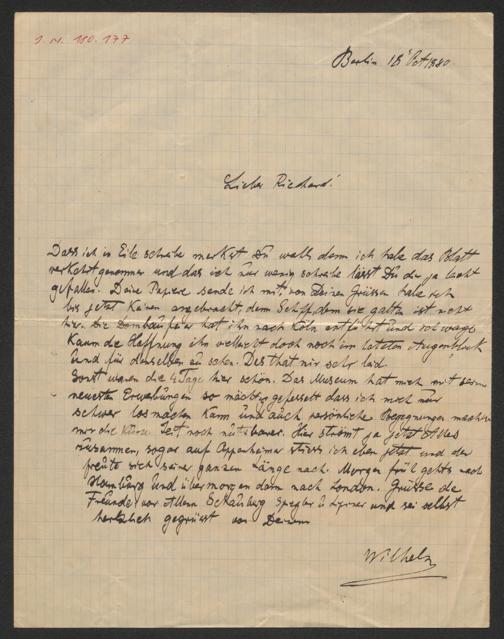 J. N. 180.177
Berlin 18 Oct 1880.
Lieber Richard!
Dass ich in Eile schreibe merkst Du wohl denn ich habe das Blatt
verkehrt genommen und das ich nur wenig schreibe lässt Du dir ja leicht
gefallen. Deine Papiere sende ich mit, von Deinen Grüssen habe ich
bis jetzt keinen angebracht, denn Schiff dem sie galten ist nicht
hier. Die Dombaufeier hat ihn nach Köln entführt und ich wage
kaum die Hoffnung ihn vielleicht doch noch im letzten Augenblick
und für denselben zu sehen. Das that mir sehr leid.
Sonst waren die Tage hier schön. Das Museum hat mich mit seinen
neuesten Erwerbungen so mächtig gefesselt dass ich mich nur
schwer losmachen kann und auch persönliche Begegnungen machten
mir die kurze Zeit noch nutzbarer. Hier strömt ja jetzt Alles
zusammen, sogar auf Oppenheimer stiess ich eben jetzt und der
freute sich seiner ganzen Länge nach. Morgen früh gehts nach
Hamburg und übermorgen dann nach London. Grüsse die
Freunde vor Allem Schauburg Spiegler und sei selbst
herzlich gegrüsst von Deinem
Wilhelm